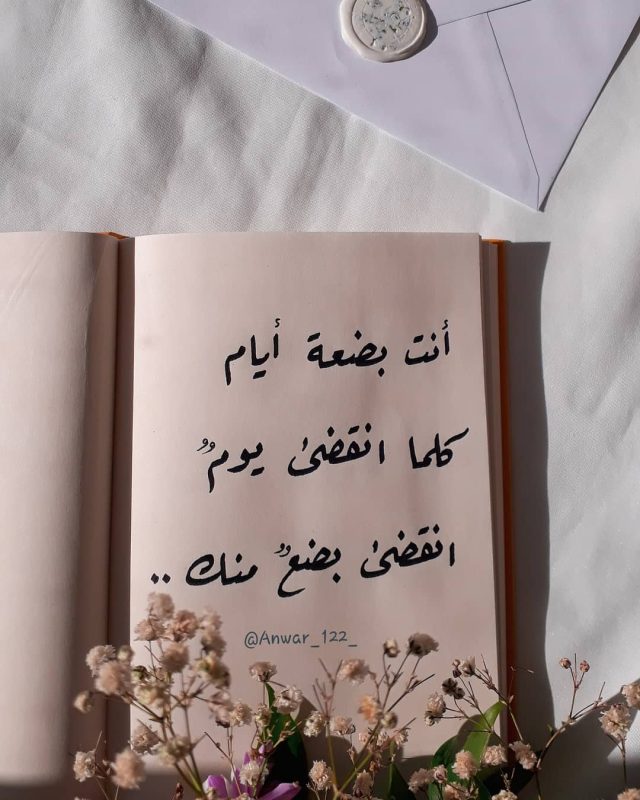 أنت بضعة أيام
كلما انقضىٰ يومٌ
انقضىٰ بضعٌ منك ..
@Anwar_122_